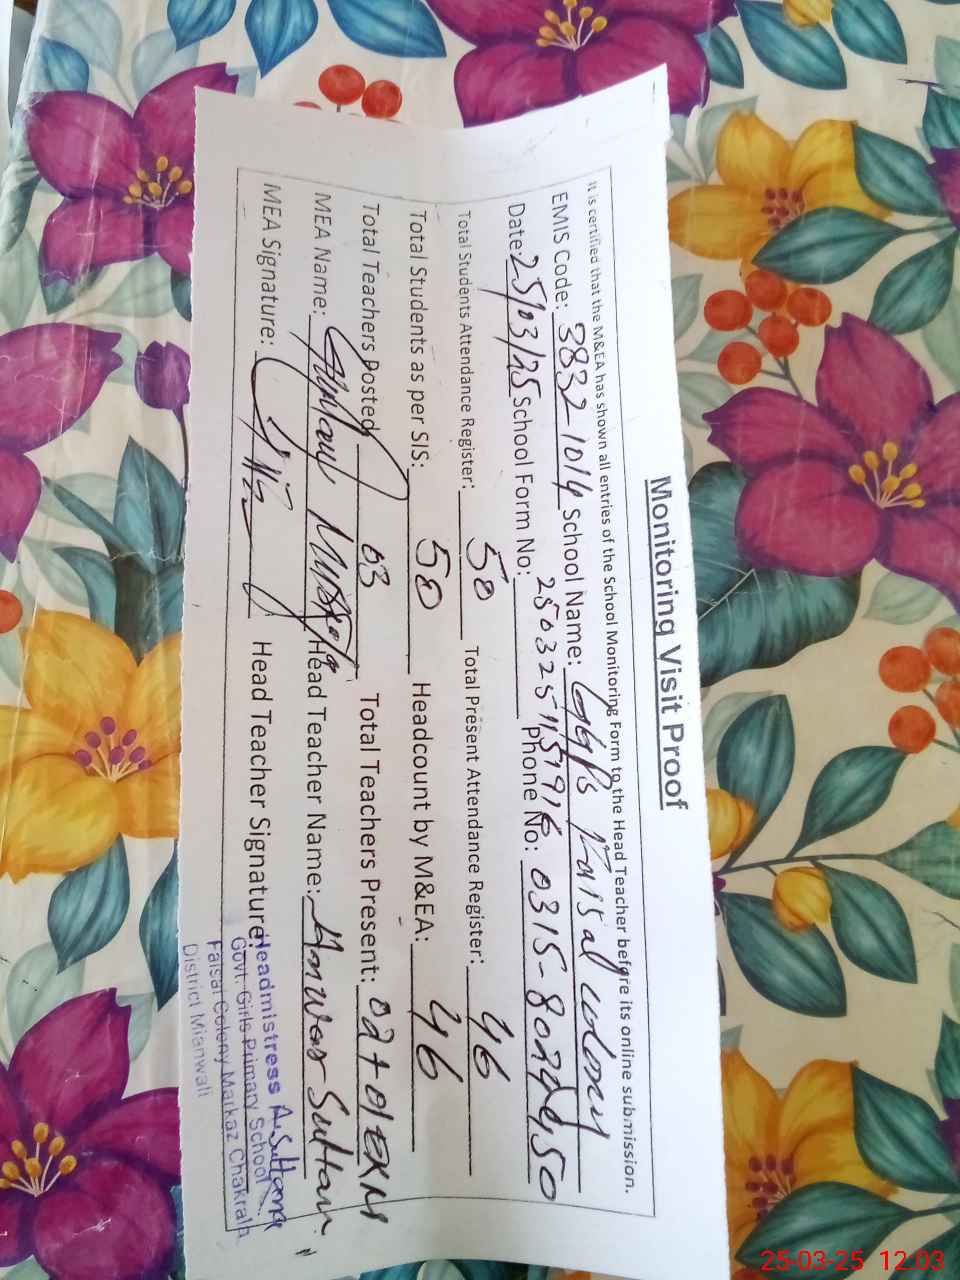 Monitoring Visit Proof
It is certified that the M&EA has shown all entries of the School Monitoring Form to the Head Teacher before its online submission.
EMIS Code: 38321014 School Name: GGPS Faisal colony
Date: 25/03/25 School Form No: 2503251157916 Phone No: 0315-8022950
Total Students Attendance Register: 50 Total Present Attendance Register: 46
Total Students as per SIS: 50 Headcount by M&EA: 46
Total Teachers Posted 03 Total Teachers Present: 02+01
MEA Name: Ghulam Head Teacher Name: Anwar Sultana
MEA Signature: Head Teacher Signature:
Headmistress A.Sultana
Govt. Girls Primary School
Faisal Colony Markaz Chakrala
District Mianwali
25-03-25 12:03